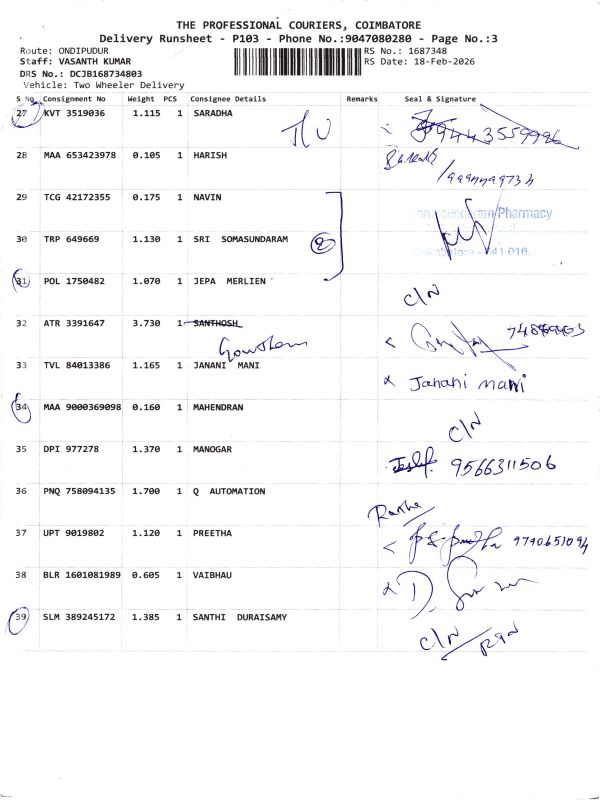 THE PROFESSIONAL COURIERS, COIMBATORE
Delivery Runsheet - P103 - Phone No.:9047080280 - Page No.:3
Route: ONDIPUDUR RS No.: 1687348
Staff: VASANTH KUMAR RS Date: 18-Feb-2026
DRS No.: DCJB168734803
Vehicle: Two Wheeler Delivery
S No Consignment No Weight PCS Consignee Details Remarks Seal & Signature
27 KVT 3519036 1.115 1 SARADHA 9443559996
28 MAA 653423978 0.105 1 HARISH
29 TCG 42172355 0.175 1 NAVIN
Pharmacy
30 TRP 649669 1.130 1 SRI SOMASUNDARAM 2
641 016.
31 POL 1750482 1.070 1 JEPA MERLIEN
C/N
32 ATR 3391647 3.730 1 SANTHOSH
Gowtham
33 TVL 84013386 1.165 1 JANANI MANI Janani mani
34 MAA 9000369098 0.160 1 MAHENDRAN
C/N
35 DPI 977278 1.370 1 MANOGAR 9566311506
36 PNQ 758094135 1.700 1 Q AUTOMATION
37 UPT 9019802 1.120 1 PREETHA 9790651094
38 BLR 1601081989 0.605 1 VAIBHAU
39 SLM 389245172 1.385 1 SANTHI DURAISAMY
C/N RTN